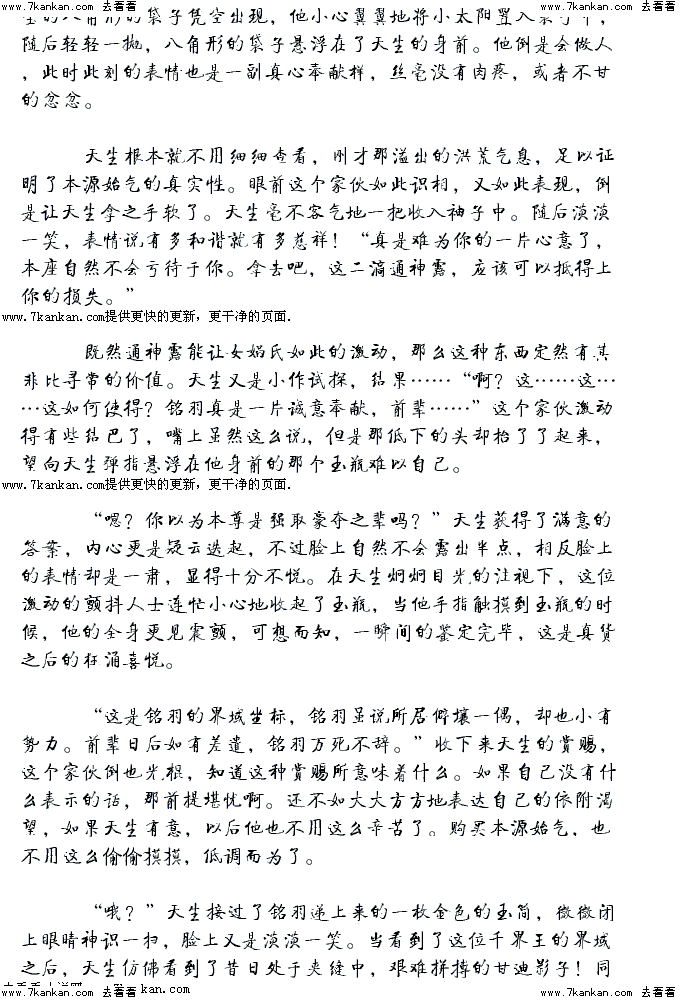 www.7kankan.com 去看看 www.7kankan.com 去看看 www.7kankan.com 去看看
里的八角形的袋子凭空出现，他小心翼翼地将小太阳置入袋子中，
随后轻轻一抛，八角形的袋子悬浮在了天生的身前。他倒是会做人
，此时此刻的表情也是一副真心奉献样，丝毫没有肉疼，或者不甘
的忿忿。
天生根本就不用细细查看，刚才那溢出的洪荒气息，足以证
明了本源始气的真实性。眼前这个家伙如此识相，又如此表现，倒
是让天生拿之手软了。天生毫不客气地一把收入袖子中。随后淡淡
一笑，表情说有多和谐就有多慈祥！“真是难为你的一片心意了，
本座自然不会亏待于你。拿去吧，这二滴通神露，应该可以抵得上
你的损失。”
www.7kankan.com提供更快的更新，更干净的页面.
既然通神露能让女娲氏如此的激动，那么这种东西定然有其
非比寻常的价值。天生又是小作试探，结果……“啊？这……这…
…这如何使得？铭羽真是一片诚意奉献，前辈……”这个家伙激动
得有些结巴了，嘴上虽然这么说，但是那低下的头却抬了了起来，
望向天生弹指悬浮在他身前的那个玉瓶难以自己。
www.7kankan.com提供更快的更新，更干净的页面.
“嗯？你以为本尊是强取豪夺之辈吗？”天生获得了满意的
答案，内心更是疑云迭起，不过脸上自然不会露出半点，相反脸上
的表情却是一肃，显得十分不悦。在天生炯炯目光的注视下，这位
激动的颤抖人士连忙小心地收起了玉瓶，当他手指触摸到玉瓶的时
候，他的全身更见震颤，可想而知，一瞬间的鉴定完毕，这是真货
之后的狂涌喜悦。
“这是铭羽的界域坐标，铭羽虽说所居僻壤一偶，却也小有
势力。前辈日后如有差遣，铭羽万死不辞。”收下来天生的赏赐，
这个家伙倒也光棍，知道这种赏赐所意味着什么。如果自己没有什
么表示的话，那前提堪忧啊。还不如大大方方地表达自己的依附渴
望，如果天生有意，以后他也不用这么辛苦了。购买本源始气，也
不用这么偷偷摸摸，低调而为了。
“哦？”天生接过了铭羽递上来的一枚金色的玉简，微微闭
上眼睛神识一扫，脸上又是淡淡一笑。当看到了这位千界王的界域
之后，天生仿佛看到了昔日处于夹缝中，艰难拼搏的甘迪影子！同
kan.com
www.7kankan.com 去看看 www.7kankan.com 去看看 www.7kankan.com 去看看